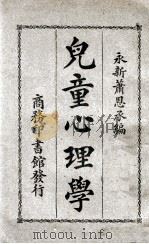 永新蕭恩承編
兒童心理學
商務印書館發行
www.mtoou.info